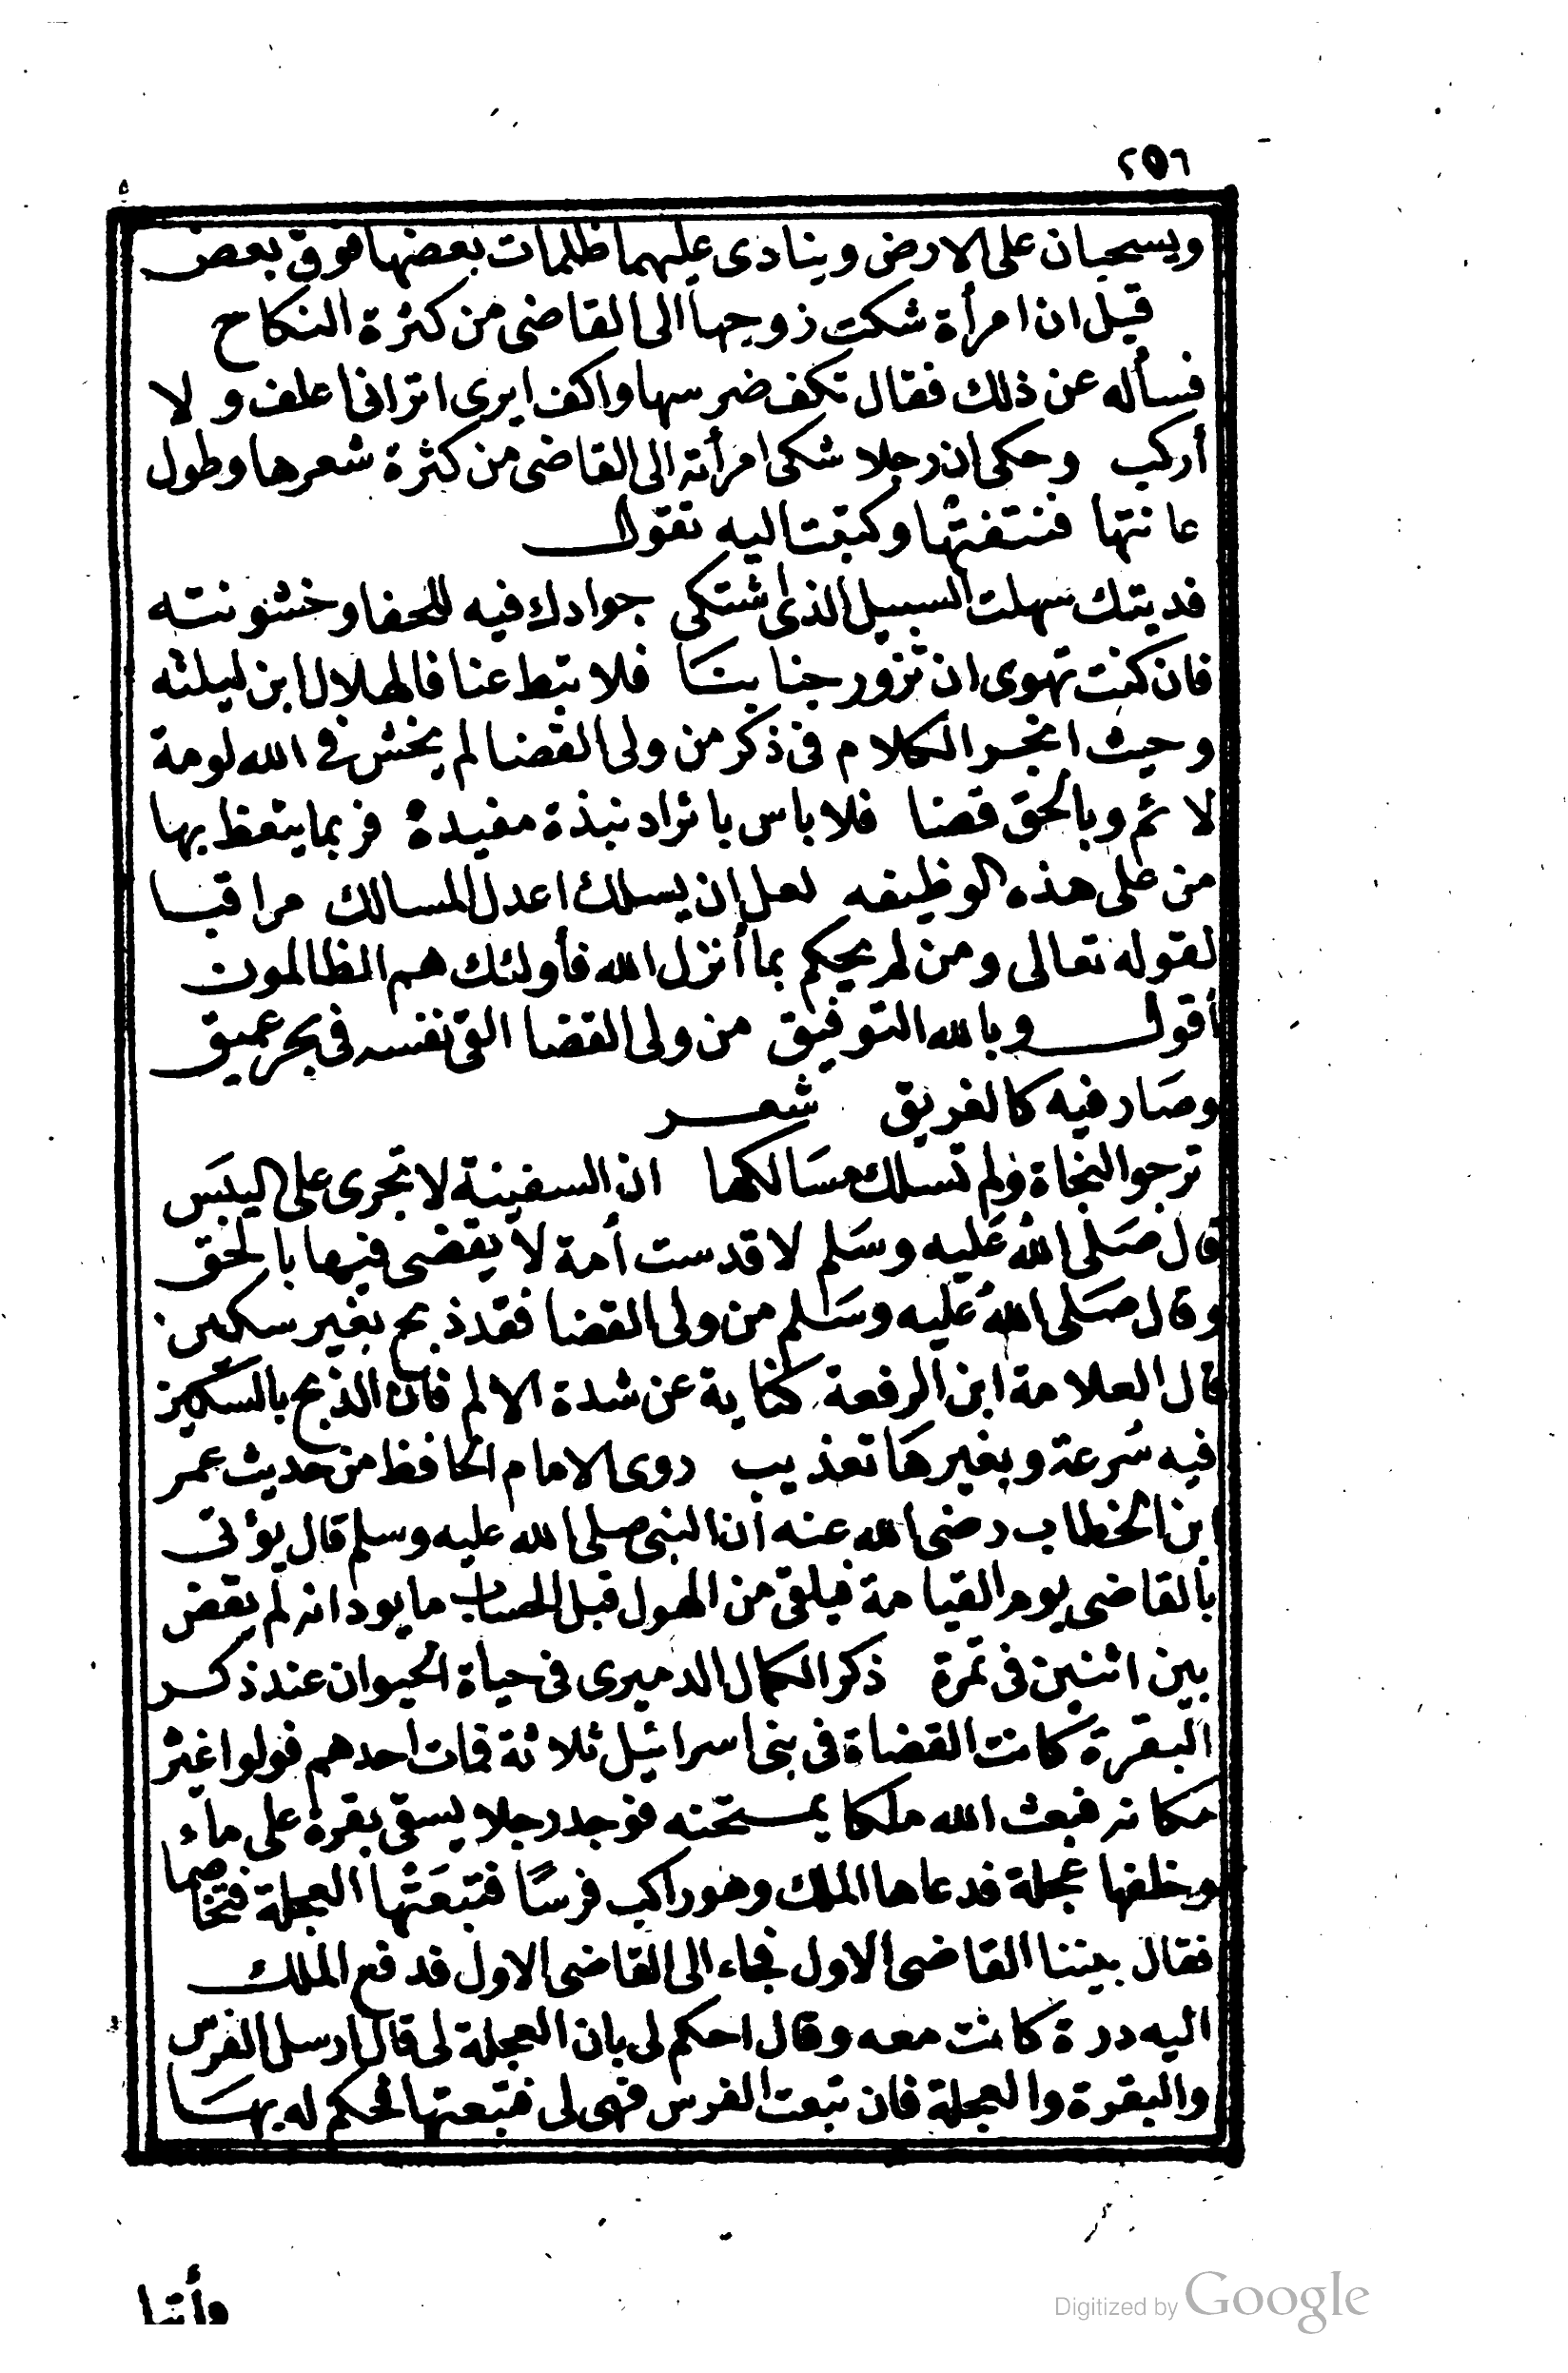 ٢٥٦
ويسحبان على الارض وينادى عليهما ظلمات بعضها فوق بعض
قيل ان امرأة شكت زوجها الى القاضى من كثرة النكاح
فسأله عن ذلك فقال تكف ضرسها واكف ايرى اترانى اعلف ولا
أركب وحكى ان رجلا شكى امرأته الى القاضى من كثرة شعرها وطول
عانتها فنتفتها وكتبت اليه تقول
فديتك سهلت السبيل الذى اشتكى جوادك فيه للحفا وخشونته
فان كنت تهوى ان تزور جنابنا فلا تبط عنا فالهلال ابن ليلته
وحيث انجر الكلام فى ذكر من ولى القضا لم يخش فى الله لومة
لائم وبالحق قضا فلا باس بايراد نبذة مفيدة فربما يتعظ بها
من على هذه الوظيفه لعل ان يسلك اعدل المسالك مراقبا
لقوله تعالى ومن لم يحكم بما أنزل الله فأولئك هم الظالمون
أقول وبالله التوفيق من ولى القضا القى نفسه فى بحر عميق
وصار فيه كالغريق شعر
ترجو النجاة ولم تسلك مسالكها ان السفينة لا تجرى على اليبس
قال صلى الله عليه وسلم لا قدست أمة لا يقضى فيها بالحق
وقال صلى الله عليه وسلم من ولى القضا فقد ذبح بغير سكين
قال العلامة ابن الرفعة كناية عن شدة الالم فان الذبح بالسكين
فيه سرعة وبغيرها تعذيب روى الامام الحافظ من حديث عمر
ابن الخطاب رضى الله عنه أن النبى صلى الله عليه وسلم قال يؤتى
بالقاضى يوم القيامة فيلقى من الهول قبل الحساب ما يود انه لم يقض
بين اثنين فى تمرة ذكر الكمال الدميرى فى حياة الحيوان عند ذكر
البقرة كانت القضاة فى بنى اسرائيل ثلاثة فمات احدهم فولوا غيره
مكانه فبعث الله ملكا يمتحنه فوجد رجلا يسقى بقرة على ماء
وخلفها عجلة فدعاها الملك وهو راكب فرسًا فتبعتها العجلة فتخاصما
فقال بيننا القاضى الاول فجاء الى القاضى الاول فدفع الملك
اليه درة كانت معه وقال احكم لى بان العجلة لى قال ارسل الفرس
والبقرة والعجلة فان تبعت الفرس فهى لى فتبعتها فحكم له بها
وأتيا
Digitized by Google